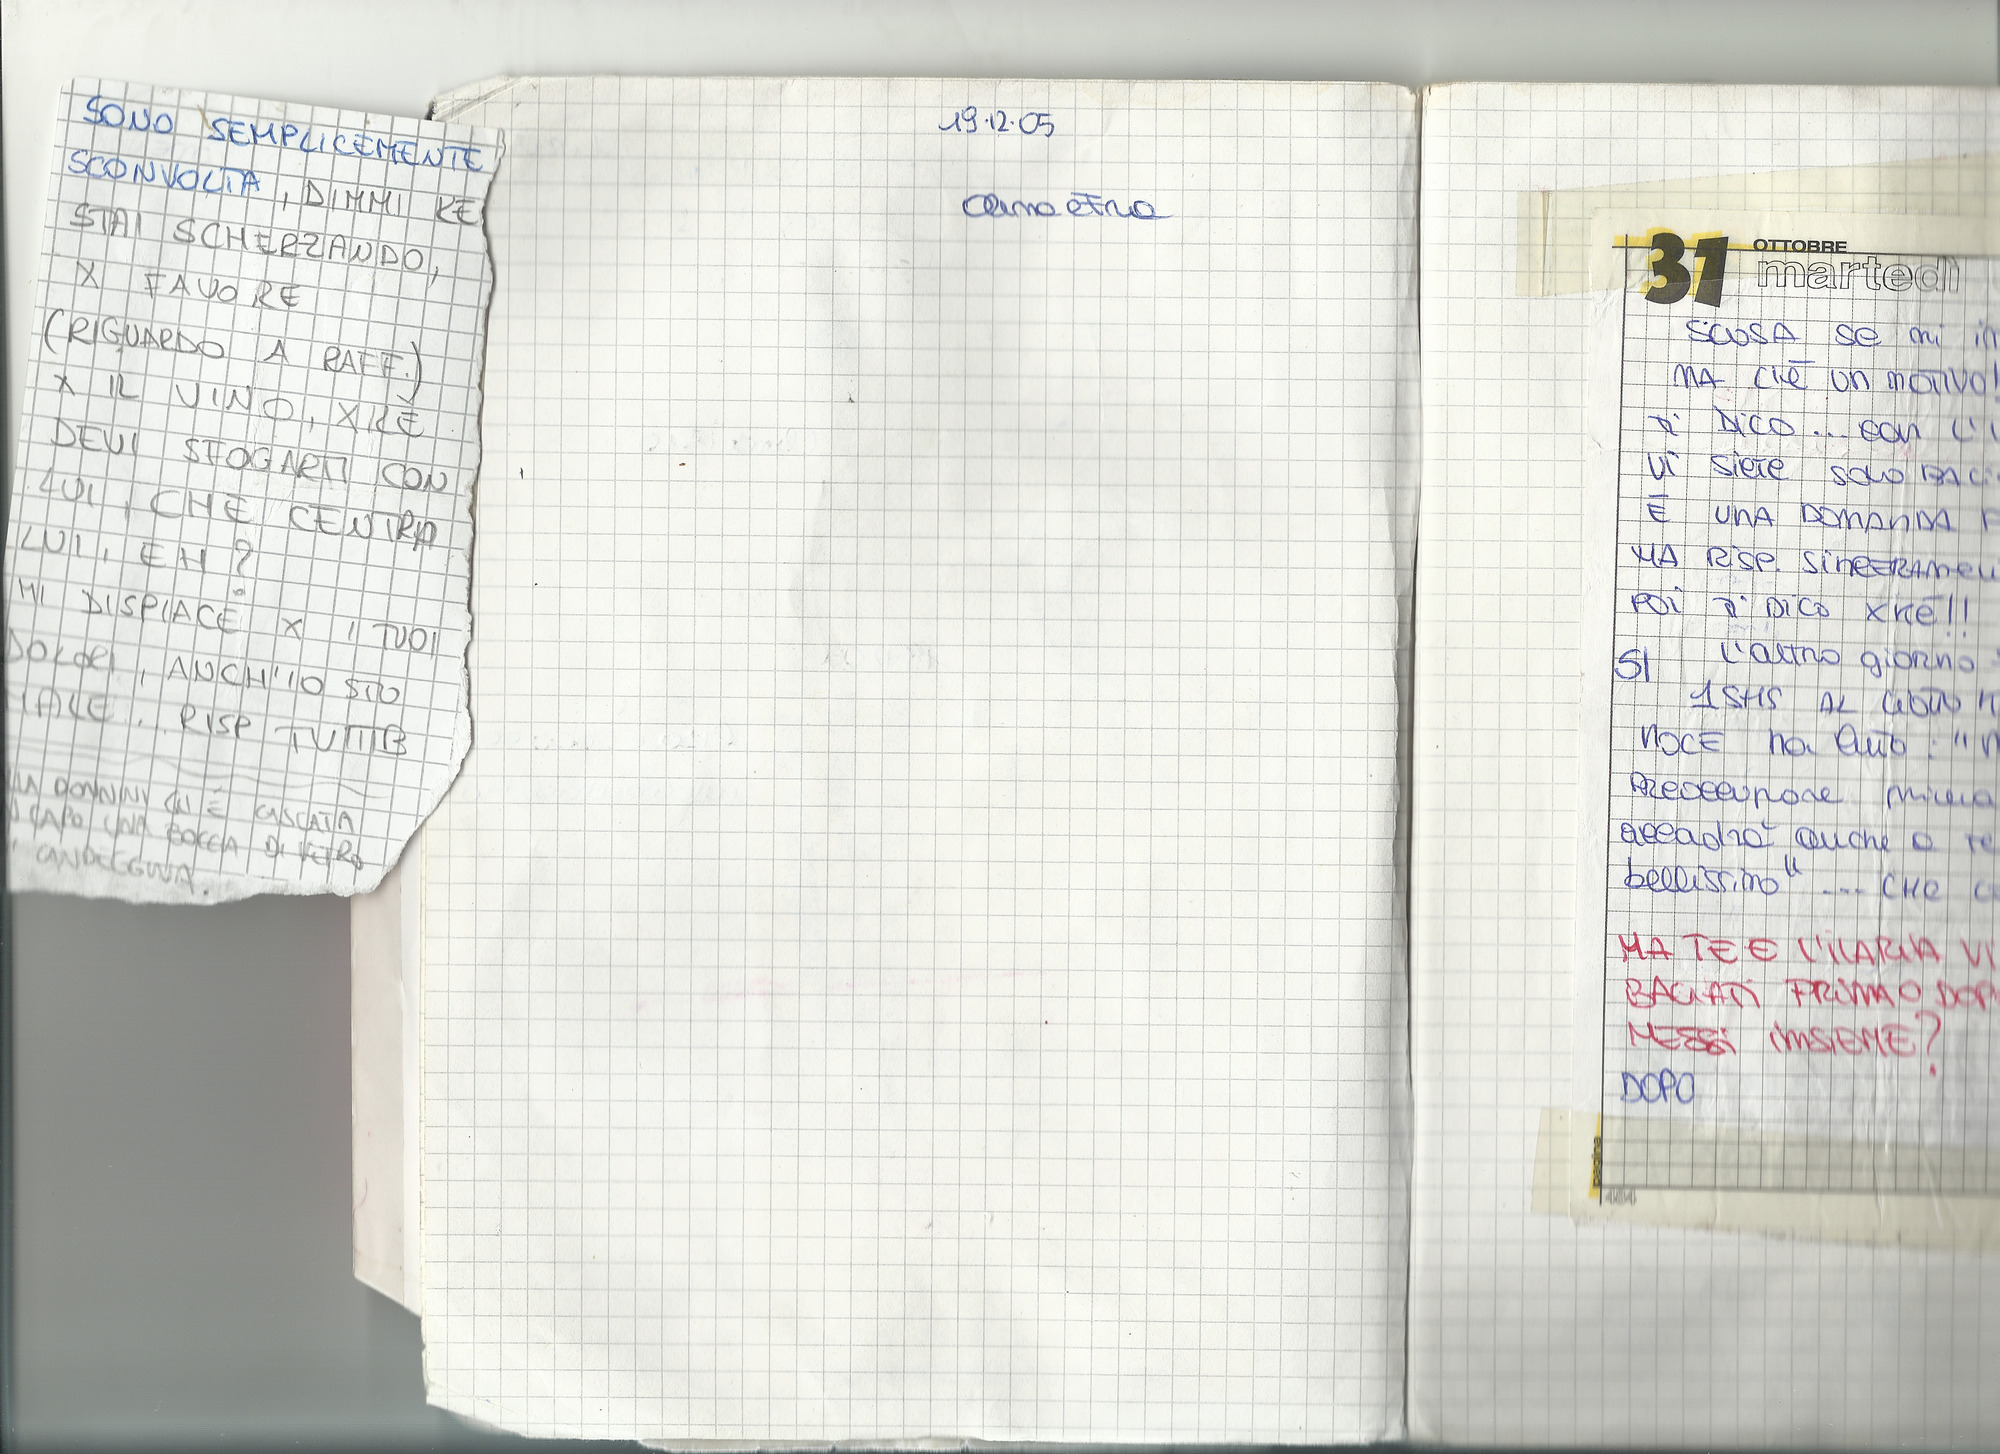 SONO SEMPLICEMENTE
SCONVOLTA, DIMMI KE
STAI SCHERZANDO,
X FAVORE
(RIGUARDO A RAFF.)
X IL VINO, XKE
DEVI SFOGARTI CON
LUI, CHE CENTRA
LUI, EH?
MI DISPIACE X I TUOI
DOLORI, ANCH'IO STO
MALE... RISP TUTTO
DONNINI CUI È CASCATA
CAPO UNA BOCCIA DI VETRO
CANDEGGINA.
19.12.05
31 OTTOBRE
martedì
SCUSA se mi
MA C'È UN MOTIVO!
Ti DICO... con L'
Vi SieTE SOLO BACI
È UNA DOMANDA
MA RISP. SINCERAMEN
POI Ti DICO XKÈ!!
SI L'altro giorno
1 SMS AL
NOCE ha
PREOCCUPARE
accadrà anche a te
bellissimo" ... CHE
MA TE E L'ILARIA VI
BACIATI PRIMA O DOP
MESSI INSIEME?
DOPO
pagina